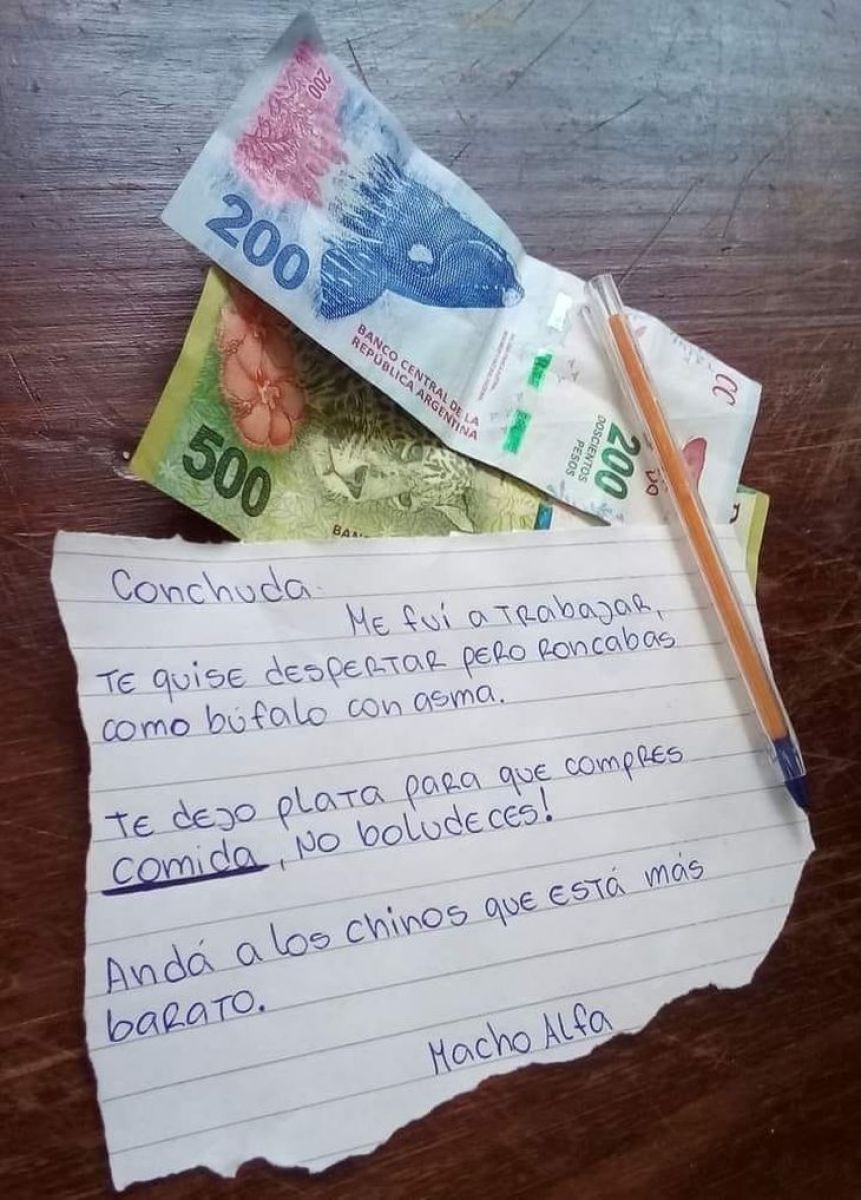 200
200
BANCO CENTRAL DE LA
REPÚBLICA ARGENTINA
CC
200
DOSCIENTOS
PESOS
500
BAN
Conchuda.
Me fuí a trabajar,
te quise despertar pero roncabas
como búfalo con asma.
Te dejo plata para que compres
comida, no boludeces!
Andá a los chinos que está más
barato.
Macho Alfa